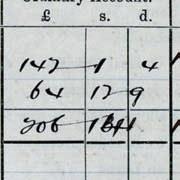 Ordinary Account.
£ s. d.
147 1 4
64 17 9
206